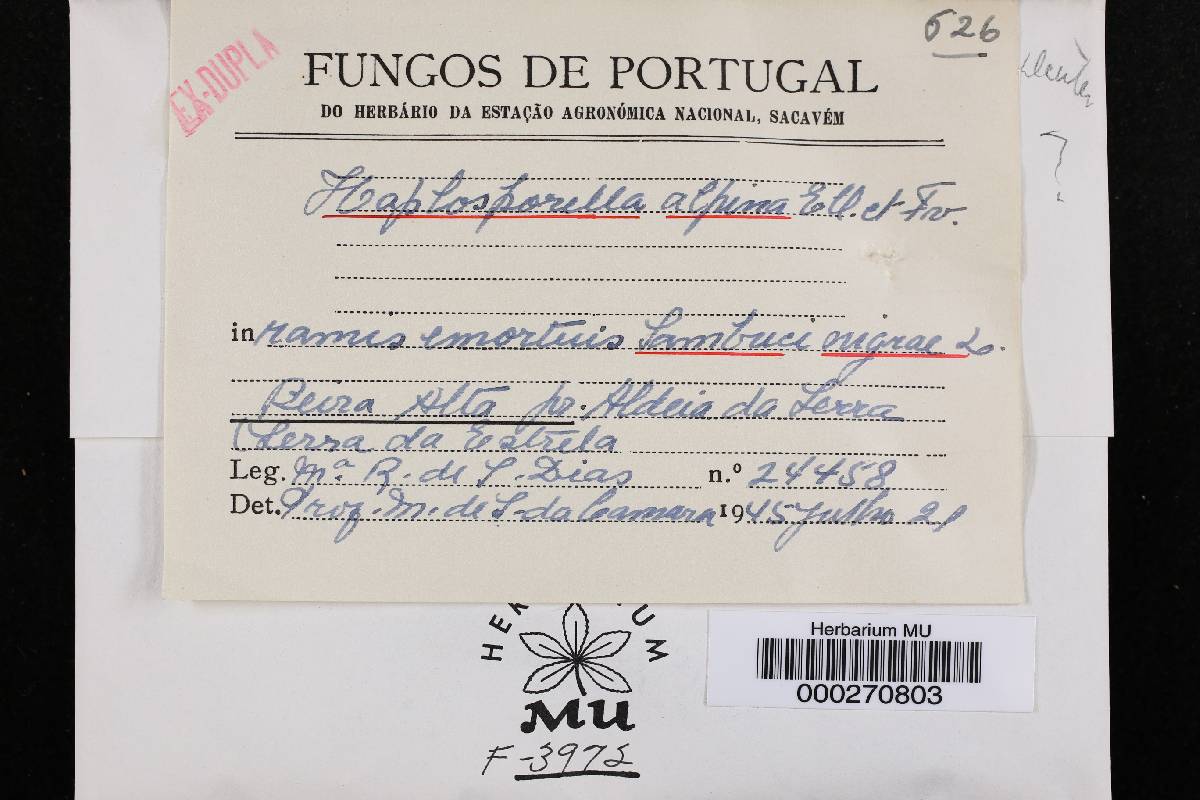 626
EX-DUPLA
FUNGOS DE PORTUGAL
DO HERBÁRIO DA ESTAÇÃO AGRONÓMICA NACIONAL, SACAVÉM
Haplosporella alpina Ell. et Ev.
in ramis emortuis Sambuci nigrae L.
Beira Alta pr. Aldeia da Serra
(Serra da Estrêla
Leg. Mª R. de S. Dias n.º 24458
Det. Prof. M. de S. da Camara 1945 julho 21
?
HERBARIUM
MU
F-3972
Herbarium MU
000270803